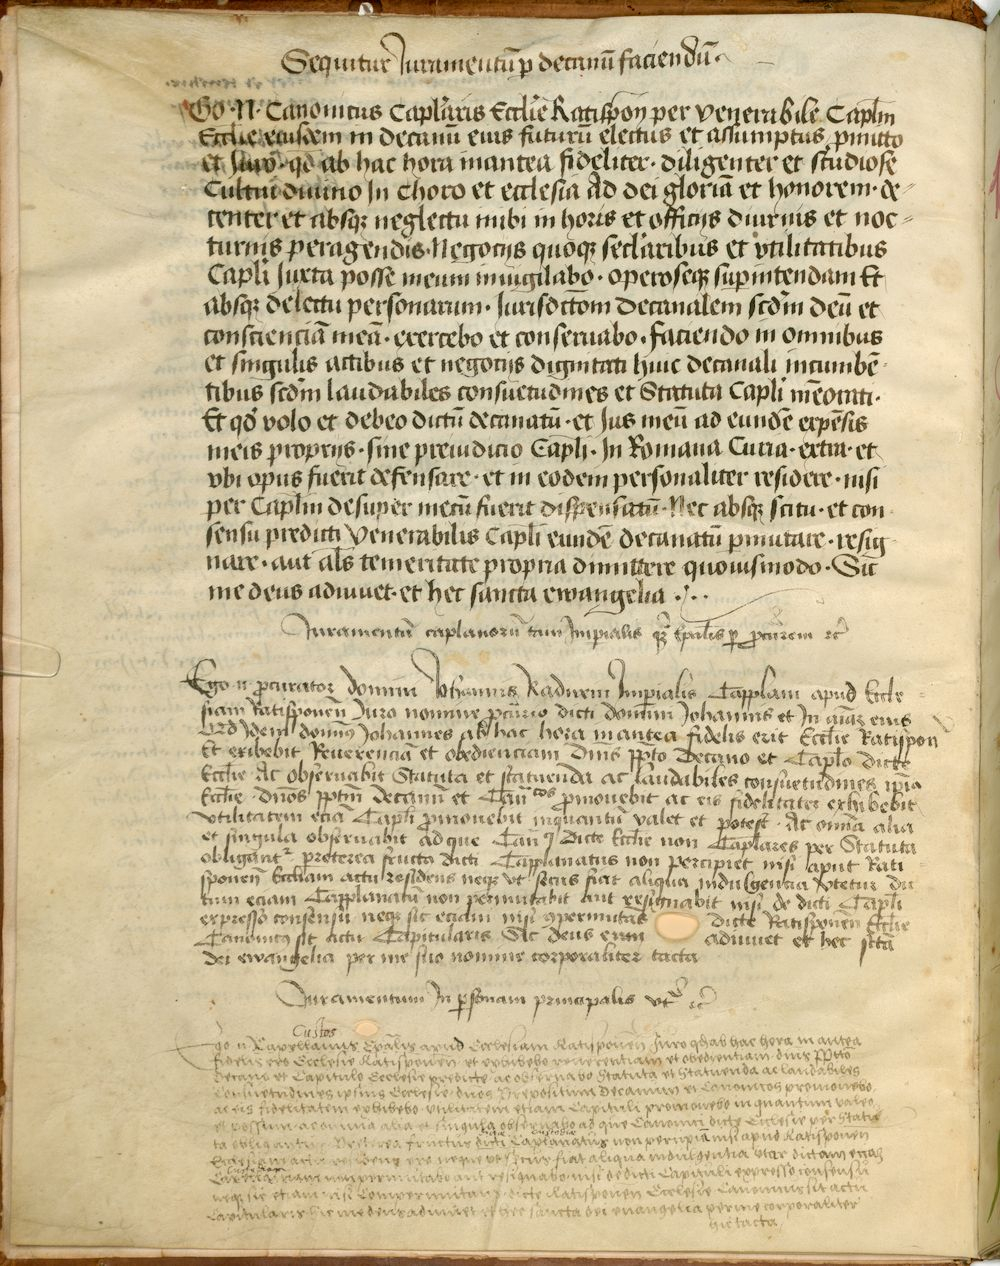 Sequitur Iuramentū p decanū faciendū.
Go .N. Canonicus Caplaris Ecclie Ratispon per venerabile Caplm
Ecclie eiusdem in decanū eius futurū electus et assumptus, pmitto
et Iuro. qd ab hac hora inantea fideliter. diligenter et studiose
Cultui divino In choro et ecclesia Ad dei gloriā et honorem. de-
center et absqz neglectu mihi in horis et officijs diurnis et noc-
turnis peragendis. Negocijs quoqz seclaribus et vtilitatibus
Capli Iuxta posse meum inuigilabo. operoseqz supintendam Et
absqz delectu personarum. Iurisdictōm decanalem scdm deū et
conscienciā meā. exercebo et conseruabo. faciendo in omnibus
et singulis actibus et negocijs dignitati huic decanali incumbē-
tibus scdm laudabiles consuetudines et Statuta Capli mēorati.
Et qd volo et debeo dictū decanatū. et Ius meū ad eundē expēsis
meis proprijs. sine preiudicio Capli. In Romana Curia. extra. et
vbi opus fuerit defensare. et in eodem personaliter residere. nisi
per Caplm desuper mecū fuerit dispensatū. Nec absqz scitu. et con
sensu predicti Venerabilis Capli eundē decanatū pmutare. resig
nare. aut als temeritate propria dimittere quouismodo. Sic
me deus adiuuet. et hec sancta ewangelia ./..
Iuramentū caplanorū tam Impialis qz Epalis p pcurem rc
Ego n pcurator domini Iohannis Radnem Impialis Cappllam apud Eccle-
siam Ratisponeñ Iuro nomine pcurio dicti domini Johannis et In aīaz eius
Qd Idem domin9 Iohannes ab hac hora inantea fidelis erit Ecclie Ratispoñ
Et exibebit Reuerenciā et obedienciam Dnis ppto Decano et Caplo dicte
Ecclie Ac obseruabit Statuta et statuenda ac laudabiles consuetudines ipīa
Ecclie. Dnos pptm Decanū et Cancos pmouebit ac eis fidelitatez exhibebit
vtilitatem eciā Capli pmouebit inquantū valet et potest. Ac omīa alia
et singula obseruabit ad que Can9 Dicte Ecclie non Caplares per Statuta
obligant. preterea fructs dicti Capplanatus non percipiet nisi aput Rati-
sponeñ Eccliam actu residens neqz vt secus fiat aliqua indulgencia vtetur dic
tum eciam Capplanatū non permutabit aut resignabit nisi de dicti Capli
expresso consensu neqz sic eciam nisi cpermutās dicte Ratisponeñ Ecclie
Canonic9 sit actu Capitularis Sic deus eum adiuuet et hec sctā
dei ewangelia per me suo nomine corporaliter tacta
Iuramentum In psonam principalis vt s rc
Custos
Ego n Capellanus Epalis apud Ecclesiam Ratisponeñ Iuro qd ab hac hora in antea
fidelis ero Ecclesie Ratisponeñ et exhibebo reuerentiam et obedientiam dnis ppto
Decano et Capitulo Ecclesie predicte ac obseruabo statuta et statuenda ac laudabiles
consuetudines ipsius Ecclesie, dnos prepositum Decanum et Canonicos promouebo,
ac eis fidelitatem exhibebo. vtilitatem etiam Capituli promouebo in quantum valeo
et possum ac omnia alia et singula obseruabo ad que Canonici dicte Ecclesie per statu
Custodie
ta obligantur. Preterea fructus dicti Caplanatus non percipiā nisi apud Ratisponeñ
Ecclesiam actu residens ero neque vt secus fiat aliqua indulgentia vtar dictam etiam
Custodiam
non permutabo aut resignabo nisi de dicti Capituli expresso consensu
neqz sic etiam nisi compermutans dicte Ratisponeñ Ecclesie Canonicus sit actu
Capitularis sic me deus adiuuet et hec sancta dei euangelia per me corporaliter
hic tacta